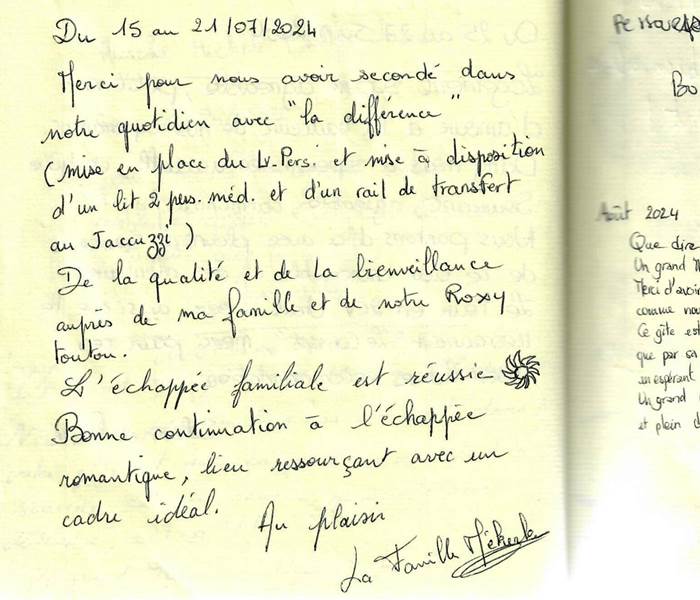 Du 15 au 21/07/2024
Merci pour nous avoir secondé dans
notre quotidien avec "la différence"
(mise en place du Lv-Pers. et mise à disposition
d'un lit 2 pers. méd. et d'un rail de transfert
au Jaccuzzi)
De la qualité et de la bienveillance
auprès de ma famille et de notre Roxy
toutou.
L'échappée familiale est réussie
Bonne continuation à l'échappée
romantique, lieu ressourçant avec un
cadre idéal.
Au plaisir
La Famille
Bo
Août 2024
Que dire
Un grand
Merci d'avoir
comme nou
Ce gîte est
que par sa
en espérant
Un grand
et plein d